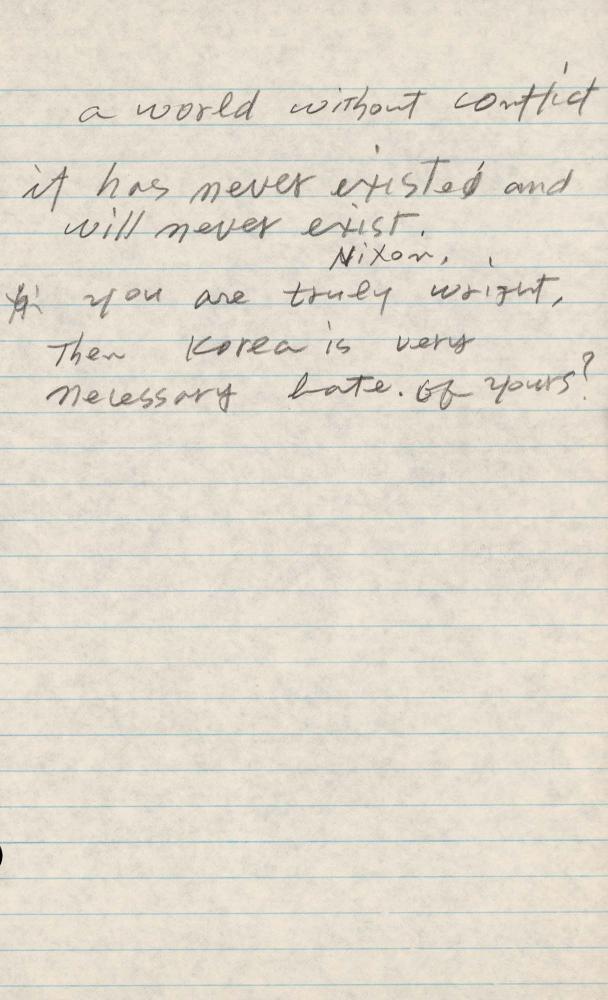 a world without conflict
it has never existed and
will never exist.
Nixon,
you are truly wright,
Then Korea is very
necessary hate. of yours?